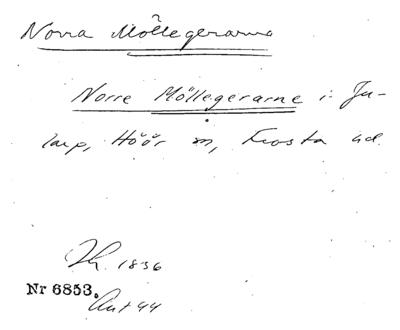 Norra Möllegerarna
Norre Möllegerarne i Ju-
larp, Höör sn, Frosta hd.
Jb. 1836
Nr 6853.
Ant 44